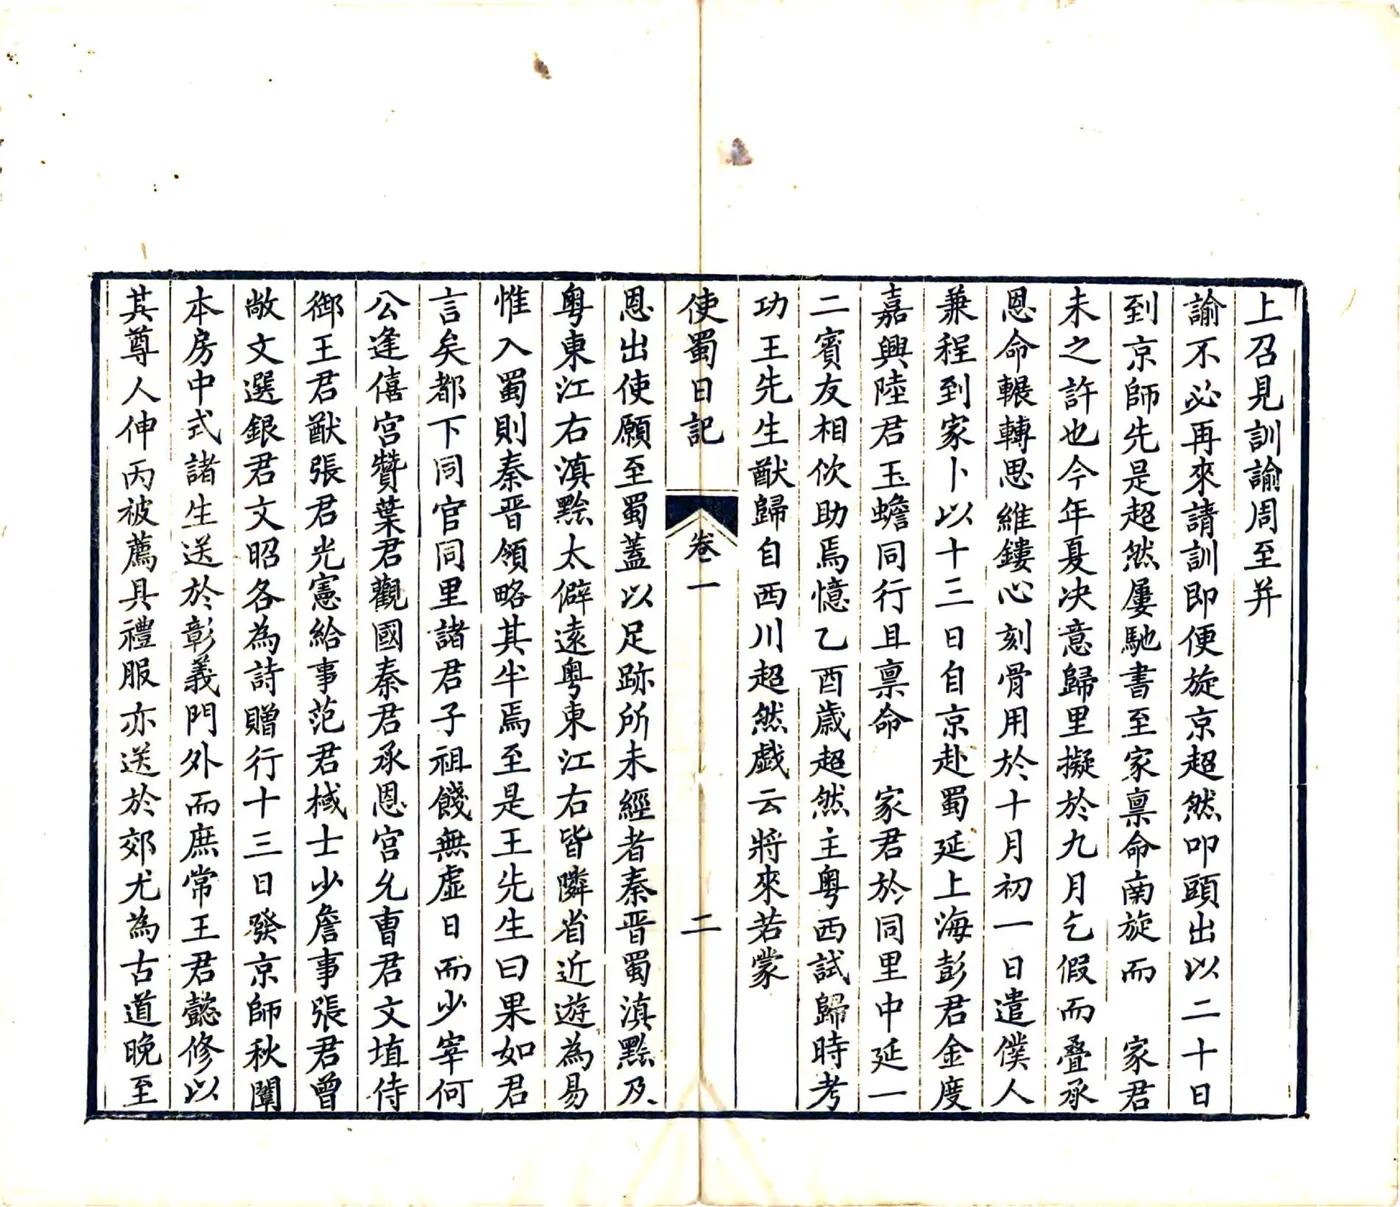 上召見訓諭周至并
諭不必再來請訓即便旋京超然叩頭出以二十日
到京師先是超然屢馳書至家禀命南旋而　家君
未之許也今年夏決意歸里擬於九月乞假而疊承
恩命輾轉思維鏤心刻骨用於十月初一日遣僕人
兼程到家卜以十三日自京赴蜀延上海彭君金度
嘉興陸君玉蟾同行且禀命　家君於同里中延一
二賓友相佽助焉憶乙酉歲超然主粤西試歸時考
功王先生猷歸自西川超然戲云將來若蒙
使蜀日記　卷一　二
恩出使願至蜀蓋以足跡所未經者秦晋蜀滇黔及
粤東江右滇黔太僻遠粤東江右皆隣省近遊為易
惟入蜀則秦晋領略其半焉至是王先生曰果如君
言矣都下同官同里諸君子祖餞無虚日而少宰何
公逢僖宮贊葉君觀國秦君承恩宮允曹君文埴侍
御王君猷張君光憲給事范君棫士少詹事張君曾
敞文選銀君文昭各為詩贈行十三日發京師秋闈
本房中式諸生送於彰義門外而庶常王君懿修以
其尊人伸丙被薦具禮服亦送於郊尤為古道晚至